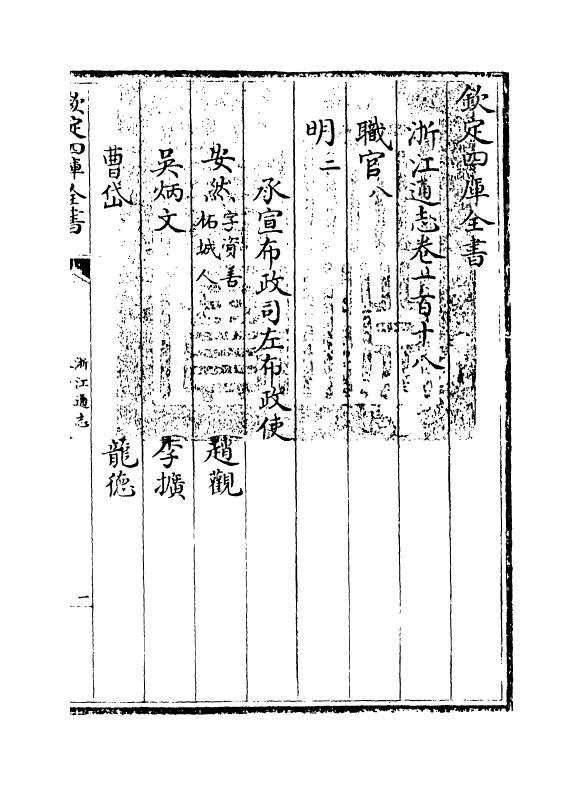 欽定四庫全書
浙江通志卷一百十八
職官八
明二
承宣布政司左布政使
安然字資善柘城人 趙觀
吳炳文 李擴
曹岱 龍德
欽定四庫全書 浙江通志 一